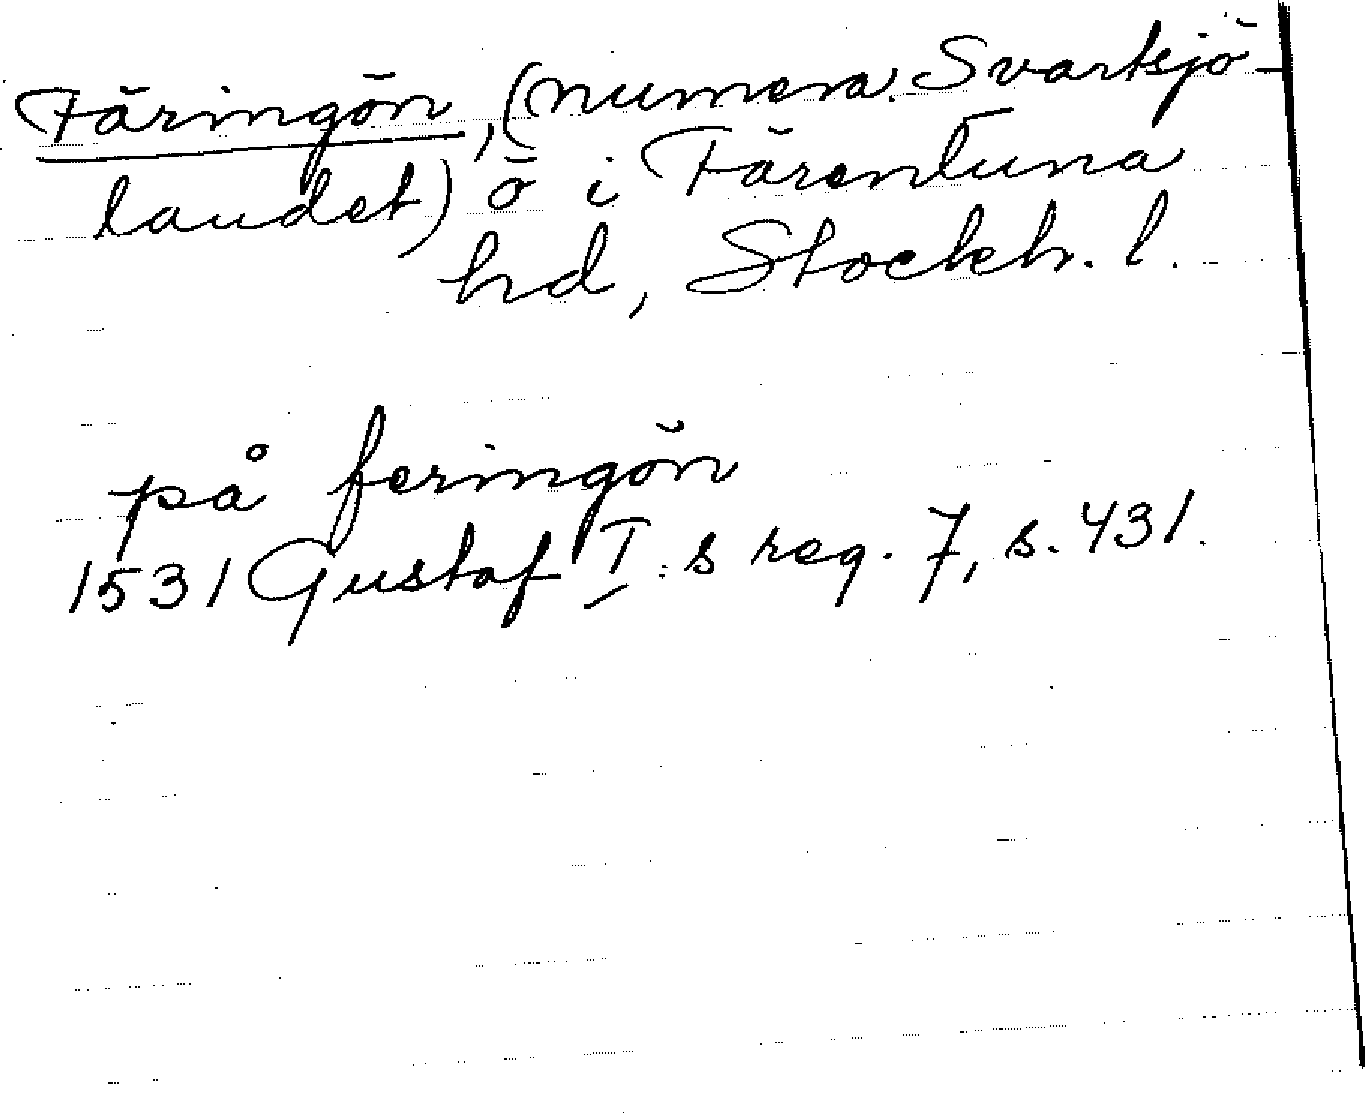 Färingön, (numera Svartsjö-
landet) ö i Färentuna
hd, Stockh. l.
på feringön
1531 Gustaf I:s reg. 7, s. 431.